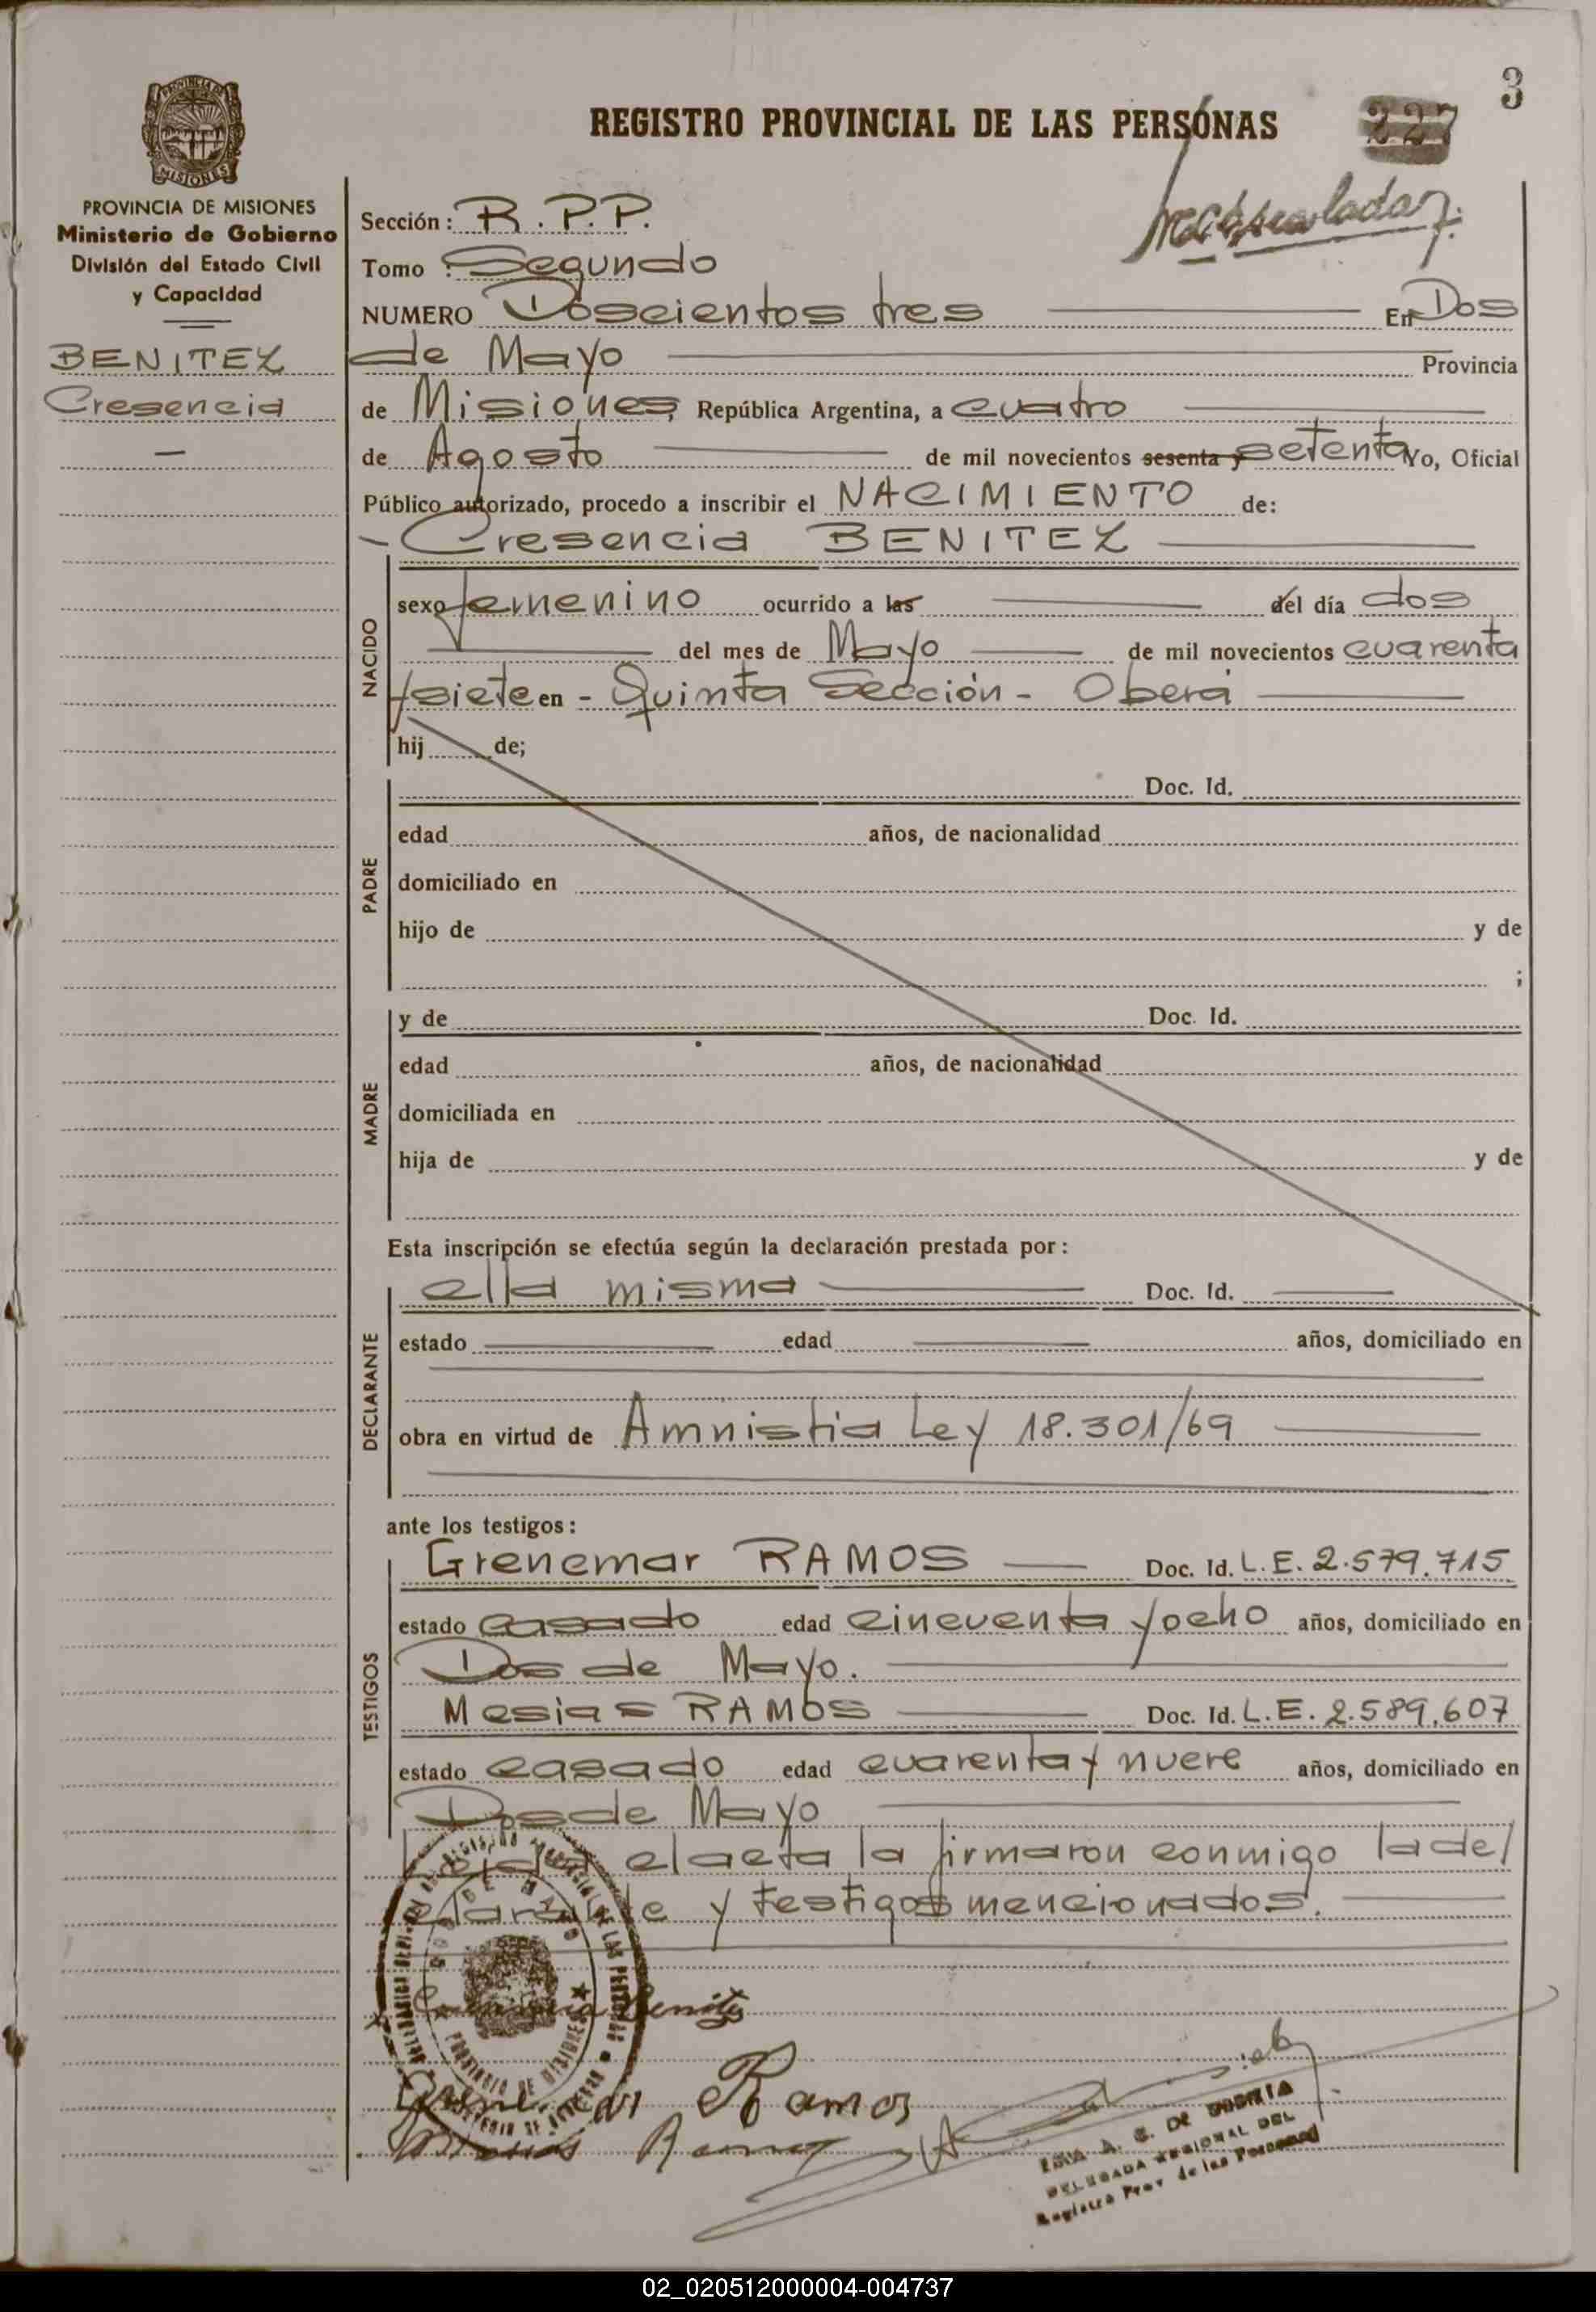 3
REGISTRO PROVINCIAL DE LAS PERSONAS
227
PROVINCIA DE MISIONES
Ministerio de Gobierno
División del Estado Civil
y Capacidad
BENITEZ
Cresencia
—
Sección: R.P.P.
Tomo : Segundo
NUMERO Doscientos tres — En Dos
de Mayo — Provincia
de Misiones, República Argentina, a cuatro —
de Agosto — de mil novecientos sesenta y setenta Yo, Oficial
Público autorizado, procedo a inscribir el NACIMIENTO de:
- Cresencia BENITEZ —
NACIDO
sexo femenino ocurrido a las — del día dos
— del mes de Mayo — de mil novecientos cuarenta
y siete en - Quinta Sección - Oberá —
hij de;
PADRE
Doc. Id.
edad años, de nacionalidad
domiciliado en
hijo de y de
;
MADRE
y de Doc. Id.
edad años, de nacionalidad
domiciliada en
hija de y de
Esta inscripción se efectúa según la declaración prestada por:
DECLARANTE
ella misma — Doc. Id. —
estado — edad — años, domiciliado en
obra en virtud de Amnistia Ley 18.301/69 —
ante los testigos:
TESTIGOS
Grenemar RAMOS — Doc. Id. L.E. 2.579.715
estado casado edad cincuenta y ocho años, domiciliado en
Dos de Mayo. —
Mesias RAMOS — Doc. Id. L.E. 2.589.607
estado casado edad cuarenta y nueve años, domiciliado en
Dos de Mayo —
el acta la firmaron conmigo la del
clarente y testigos mencionados. —
Benitez
Ramos
Ramos
A. C. DE
DELEGADA REGIONAL DEL
Registro Prov. de las Personas
02_020512000004-004737